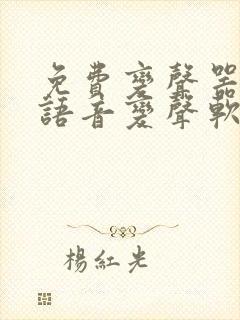 免費變聲器
語音變聲軟
楊紅光